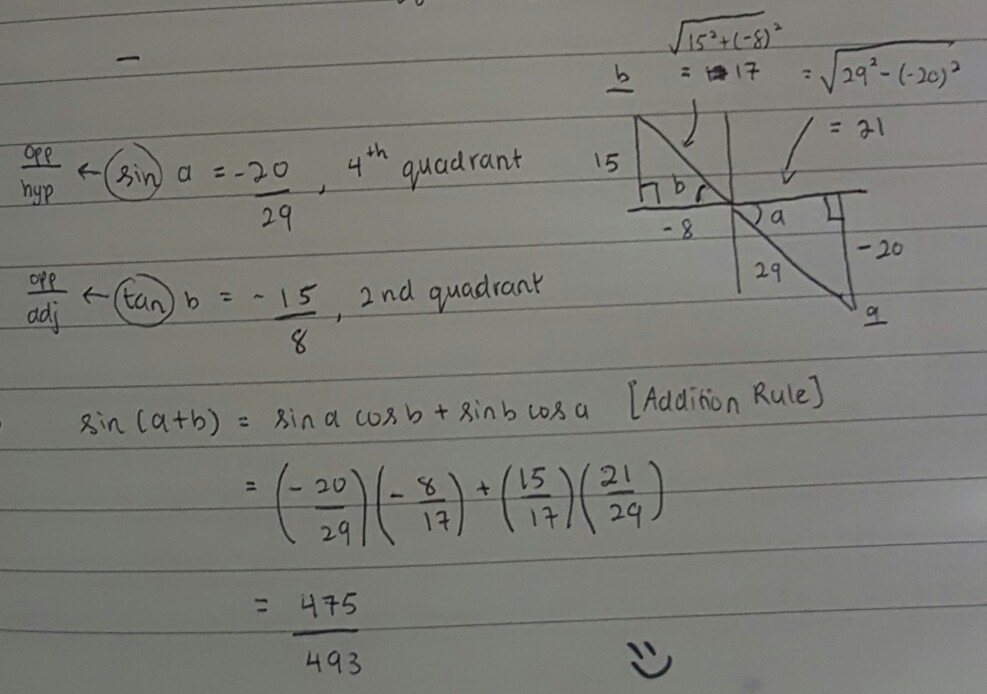 √15²+(-8)²
b = 17 = √29²-(-20)²
= 21
opp/hyp ← sin a = -20/29, 4th quadrant
15 b a
-8 -20
29
a
opp/adj ← tan b = -15/8, 2nd quadrant
sin (a+b) = sin a cos b + sin b cos a [Addition Rule]
= (-20/29)(-8/17) + (15/17)(21/29)
= 475/493